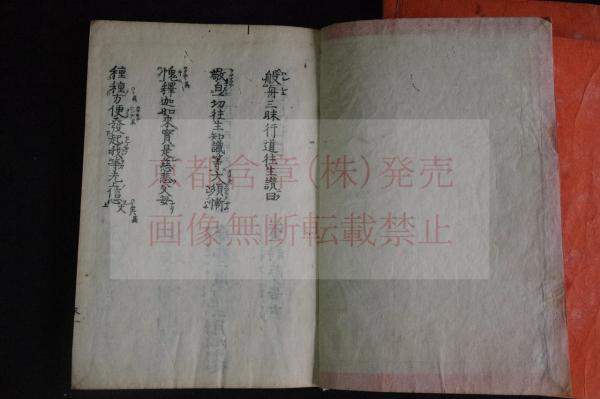 般舟三昧行道往生讃曰
敬白一切往生知識等大須慚
愧釋迦如來實是慈悲父母
種種方便發起我等无上信
京都含章(株)発売
画像無断転載禁止